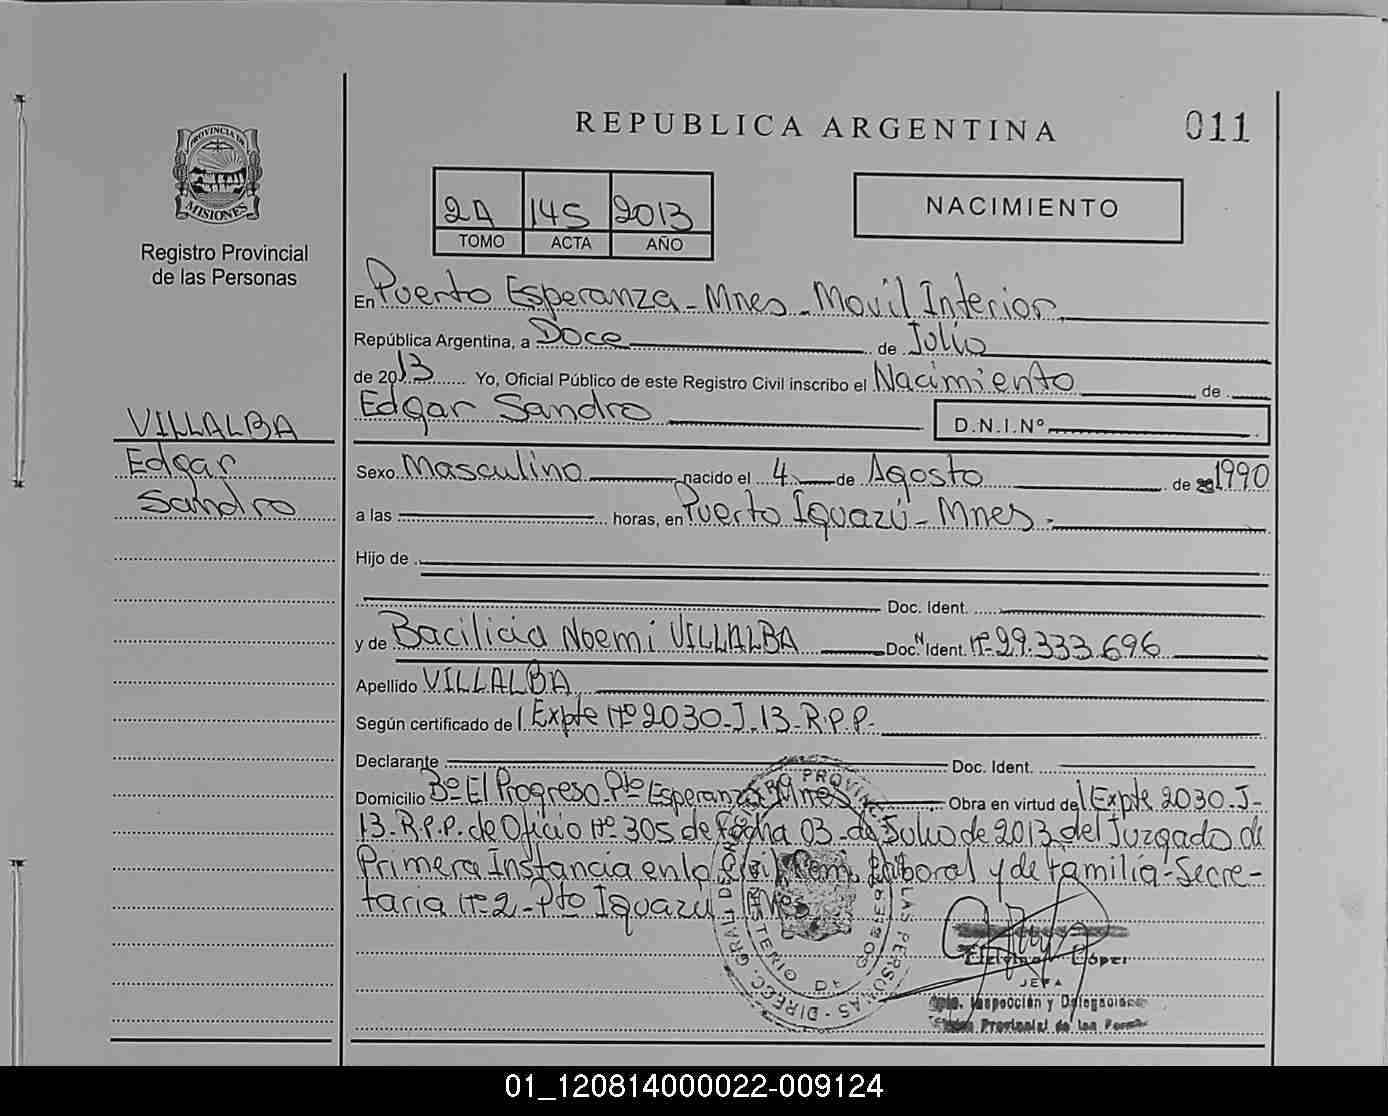 REPUBLICA ARGENTINA
011
PROVINCIA DE
MISIONES
Registro Provincial
de las Personas
2A 145 2013
TOMO ACTA AÑO
NACIMIENTO
En Puerto Esperanza - Mnes - Movil Interior
República Argentina, a Doce de Julio
de 2013 Yo, Oficial Público de este Registro Civil inscribo el Nacimiento de
Edgar Sandro D.N.I.Nº
VILLALBA
Edgar
Sandro
Sexo Masculino nacido el 4 de Agosto de 1990
a las horas, en Puerto Iguazú - Mnes -
Hijo de
Doc. Ident.
y de Bacilicia Noemi VILLALBA Doc. Ident. Nº 29.333.696
Apellido VILLALBA
Según certificado de Expte Nº 2030-J-13-R.P.P.-
Declarante Doc. Ident.
Domicilio Bº El Progreso-Pto Esperanza Mnes Obra en virtud del Expte 2030-J-
13-R.P.P. de Oficio Nº 305 de Fecha 03 de Julio de 2013 del Juzgado de
Primera Instancia en lo Civil Laboral y de Familia-Secre-
taria Nº 2-Pto Iguazú Mnes
López
JEFA
Dpto. Inspección y Delegaciones
Provincial de las Person
01_120814000022-009124